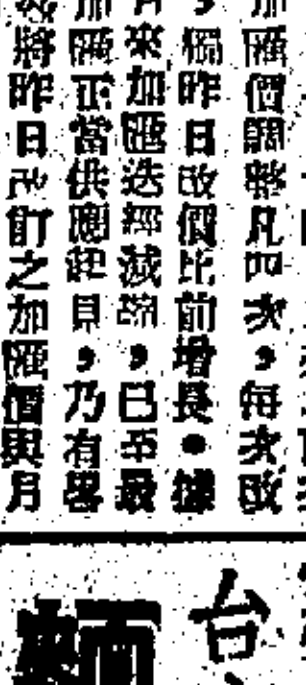 加匯價調整凡四次，每次改
，獨昨日改價比前增長●據
月來加匯迭經減縮，已至最
加匯正當供應起見，乃有畧
將昨日改訂之加匯價與月
台